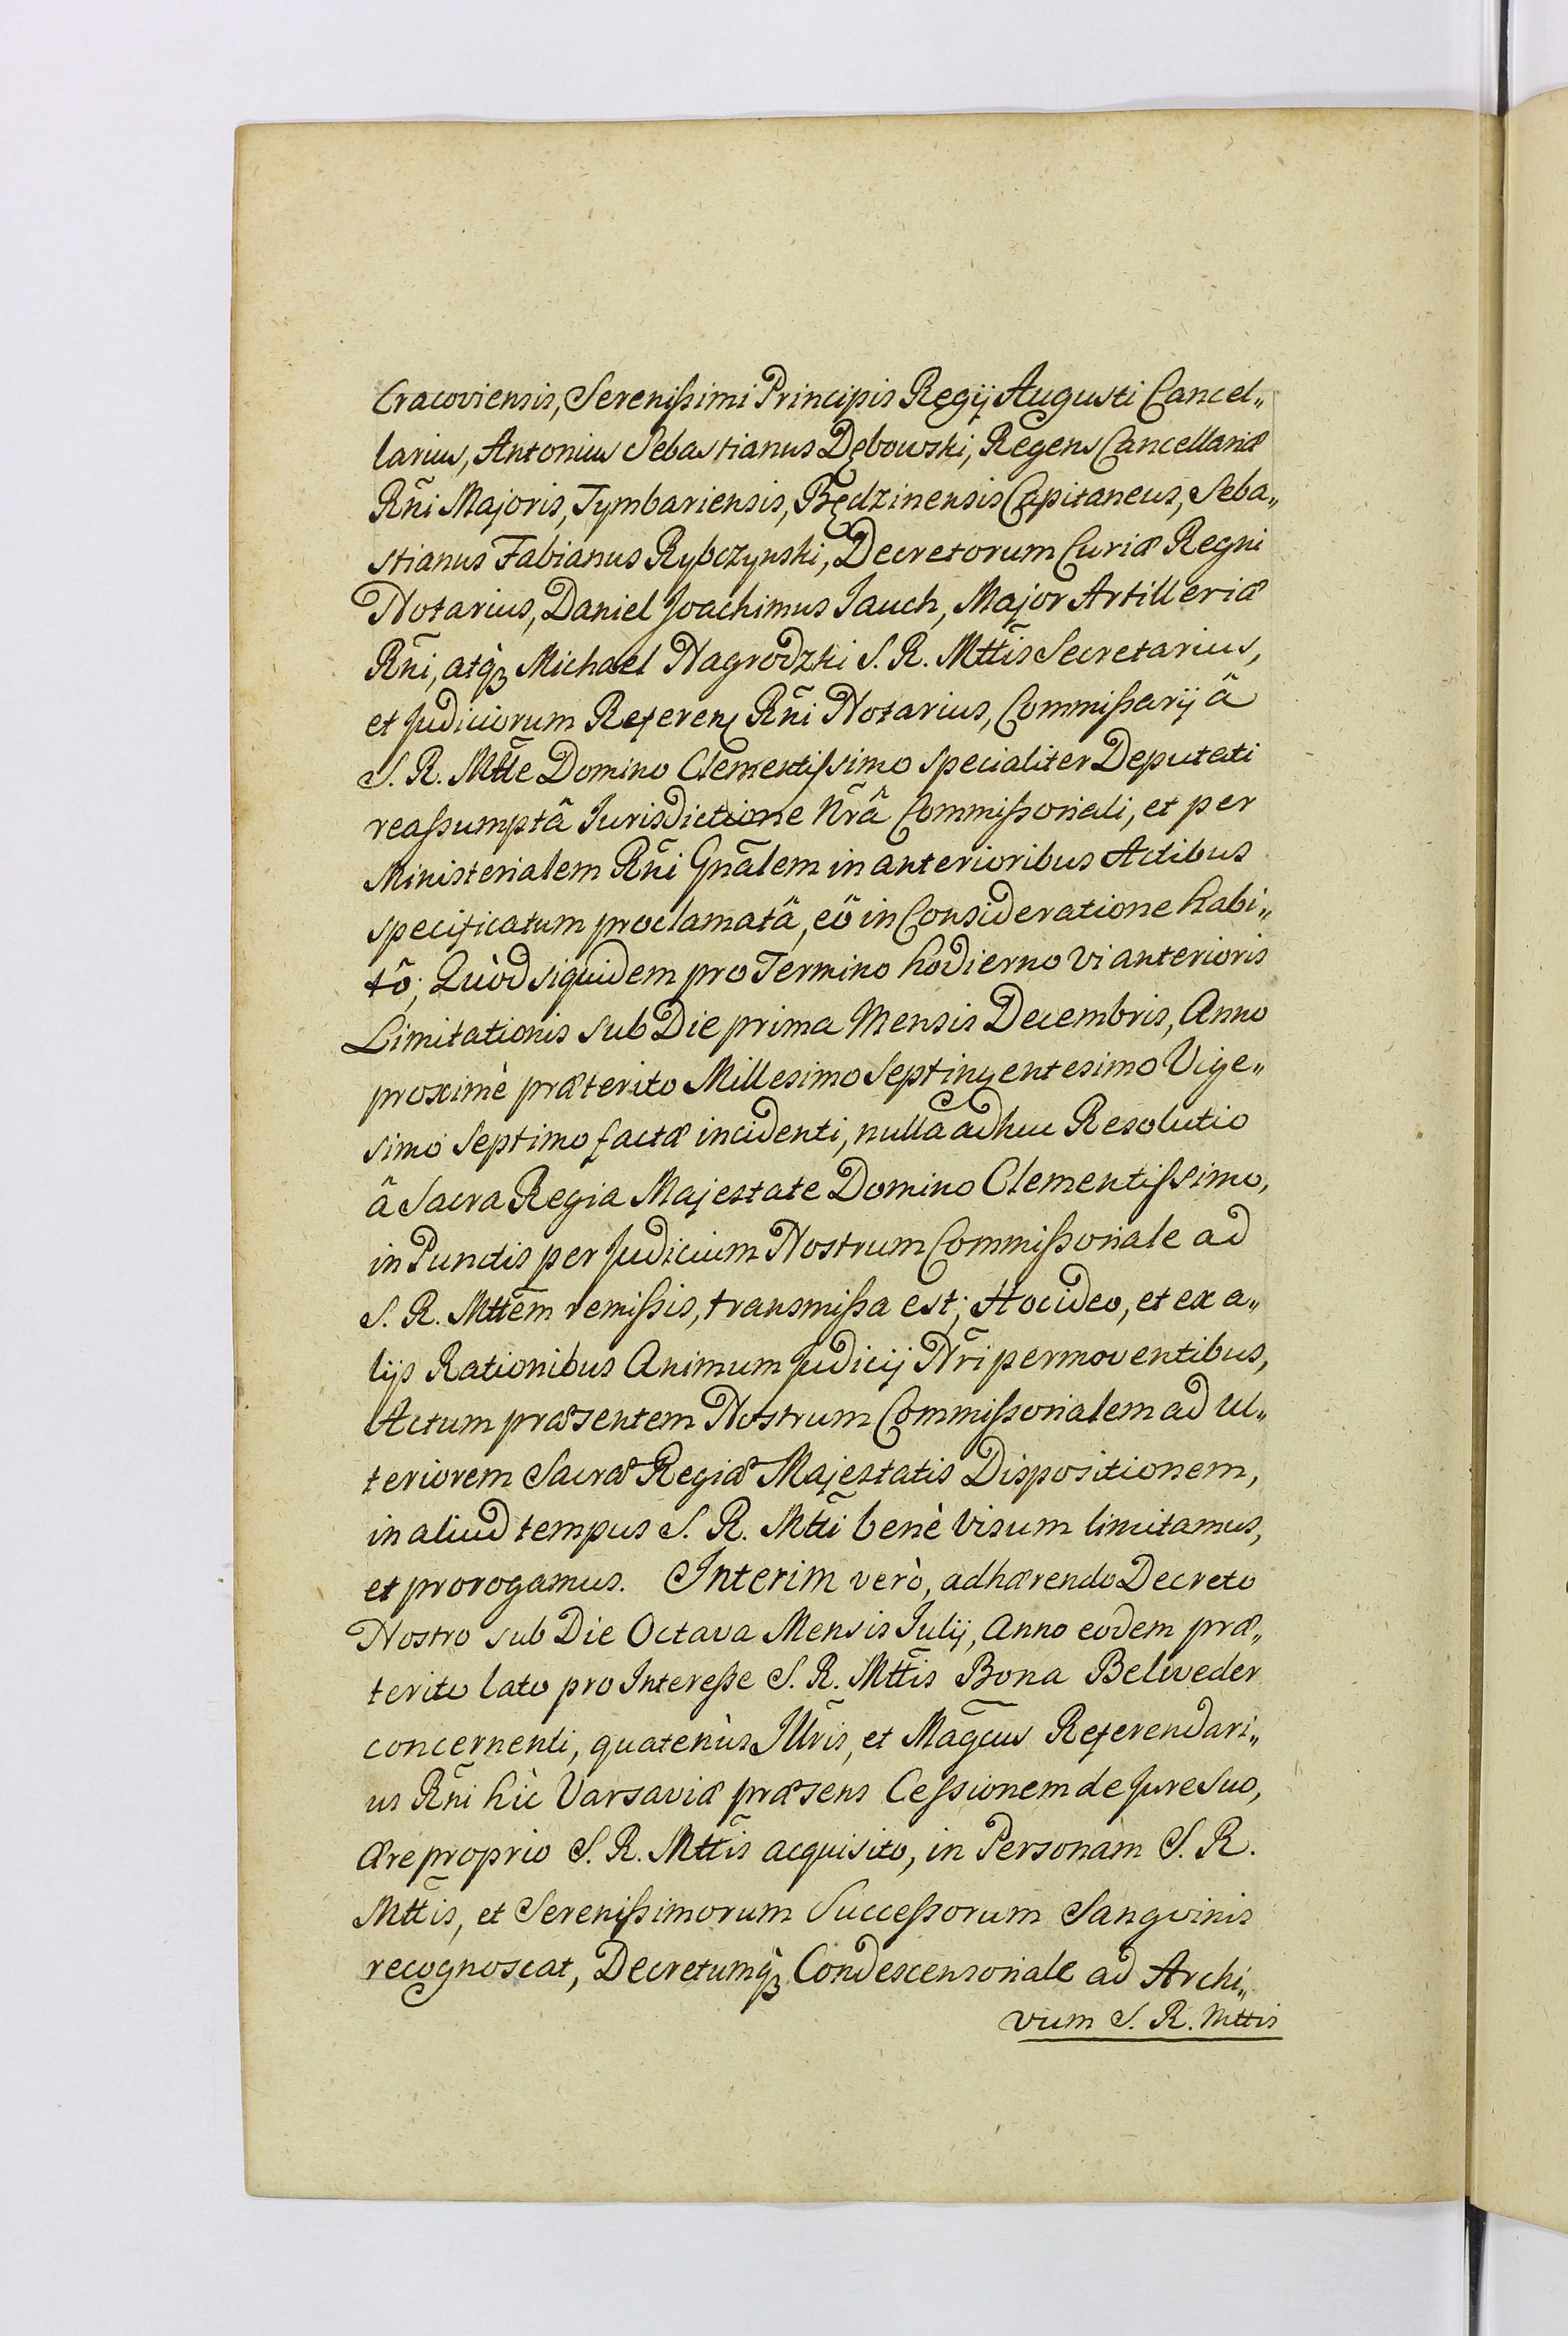 Cracoviensis, Serenißimi Principis Regij Augusti Cancel„
larius, Antonius Sebastianus Dębowski, Regens Cancellariæ
Rñi Majoris, Tymbariensis, Będzinensis Capitaneus, Seba„
stianus Fabianus Rybczynski, Decretorum Curiæ Regni
Notarius, Daniel Joachimus Jauch, Major Artilleriæ
Rñi, atqꝫ Michael Nagrodzki S. R. Mttis Secretarius,
et Judiciorum Referen Rñi Notarius, Commißarij â
S. R. Mtte Domino Clementißimo specialiter Deputati
reaßumptâ Jurisdictione Nrâ Commißoriali, et per
Ministerialem Rñi Gnãlem in anterioribus Actibus
specificatum proclamatâ, eô in Consideratione habi„
tô; Quòd siquidem pro Termino hodierno vi anterioris
Limitationis sub Die prima Mensis Decembris, Anno
proximè præterito Millesimo Septingentesimo Vige„
simo Septimo factæ incidenti, nulla adhuc Resolutio
â Sacra Regia Majestate Domino Clementißimo,
in Punctis per Judicium Nostrum Commißoriale ad
S. R. Mttem remißis, transmißa est; Hoc ideo, et ex a„
lijs Rationibus Animum Judicij Nri permoventibus,
Actum præsentem Nostrum Commißorialem ad Ul„
teriorem Sacræ Regiæ Majestatis Dispositionem,
in aliud tempus S. R. Mtti benè visum limitamus,
et prorogamus. Interim verò, adhærendo Decreto
Nostro sub Die Octava Mensis Julij, Anno eodem præ„
terito lato pro Intereße S. R. Mttis Bona Belweder
concernenti, quatenùs Illris, et Magcus Referendari„
us Rñi hìc Varsaviæ præsens Ceßionem de Jure suo,
Ære proprio S. R. Mttis acquisito, in Personam S. R.
Mttis, et Serenißimorum Succeßorum Sangvinis
recognoscat, Decretumqꝫ Condescensoriale ad Archi„
vum S. R. Mttis